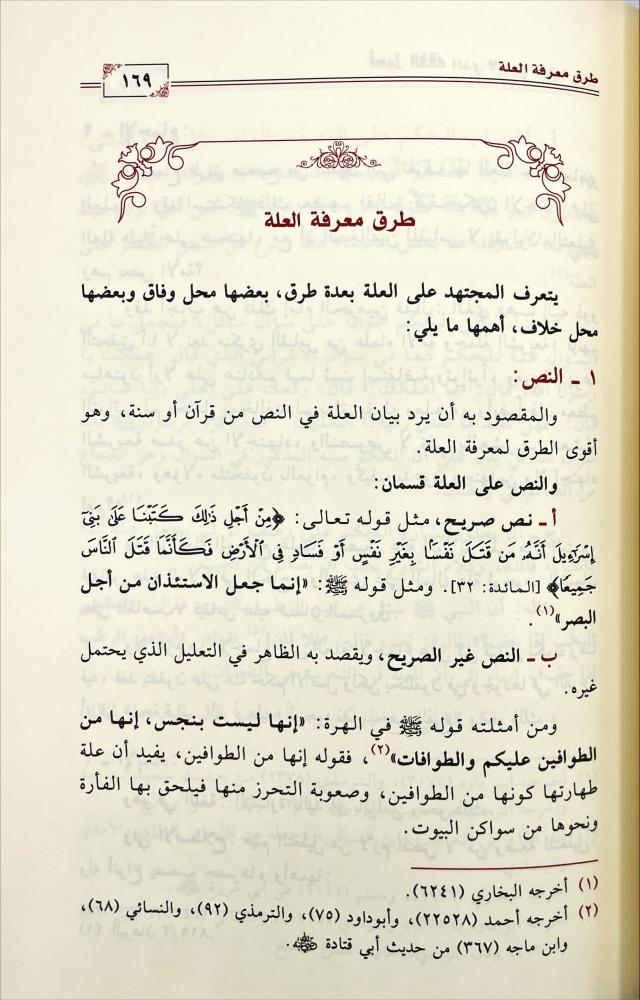 طرق معرفة العلة
١٦٩
طرق معرفة العلة
يتعرف المجتهد على العلة بعدة طرق، بعضها محل وفاق وبعضها
محل خلاف، أهمها ما يلي:
١ ـ النص:
والمقصود به أن يرد بيان العلة في النص من قرآن أو سنة، وهو
أقوى الطرق لمعرفة العلة.
والنص على العلة قسمان:
أ ـ نص صريح، مثل قوله تعالى: ﴿مِنْ أَجْلِ ذَٰلِكَ كَتَبْنَا عَلَىٰ بَنِىٓ
إِسْرَٰٓءِيلَ أَنَّهُۥ مَن قَتَلَ نَفْسًۢا بِغَيْرِ نَفْسٍ أَوْ فَسَادٍ فِى ٱلْأَرْضِ فَكَأَنَّمَا قَتَلَ ٱلنَّاسَ
جَمِيعًا﴾ [المائدة: ٣٢]. ومثل قوله ﷺ: «إنما جعل الاستئذان من أجل
البصر»(١).
ب ـ النص غير الصريح، ويقصد به الظاهر في التعليل الذي يحتمل
غيره.
ومن أمثلته قوله ﷺ في الهرة: «إنها ليست بنجس، إنها من
الطوافين عليكم والطوافات»(٢)، فقوله إنها من الطوافين، يفيد أن علة
طهارتها كونها من الطوافين، وصعوبة التحرز منها فيلحق بها الفأرة
ونحوها من سواكن البيوت.
(١) أخرجه البخاري (٦٢٤١).
(٢) أخرجه أحمد (٢٢٥٢٨)، وأبوداود (٧٥)، والترمذي (٩٢)، والنسائي (٦٨)،
وابن ماجه (٣٦٧) من حديث أبي قتادة رضي الله عنه.